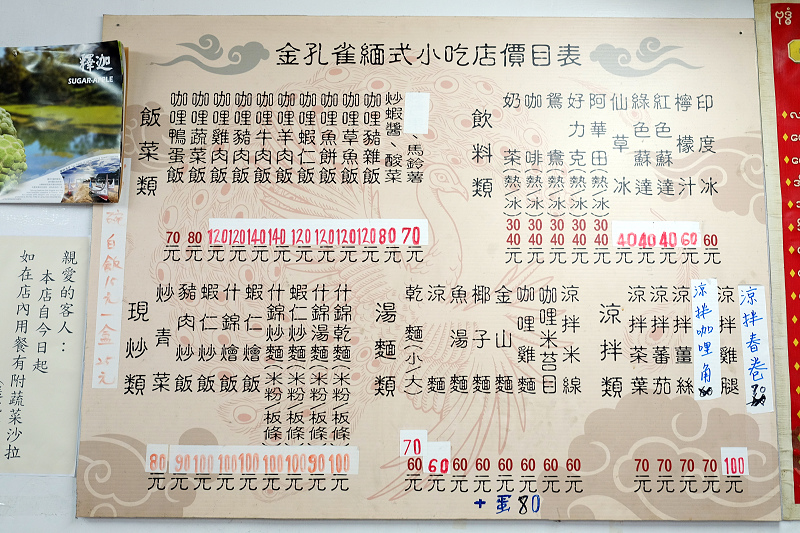 金孔雀緬式小吃店價目表
釋迦
SUGAR-APPLE
飯菜類
咖哩鴨蛋飯 70元
咖哩蔬菜飯 80元
咖哩雞肉飯 120元
咖哩豬肉飯 120元
咖哩牛肉飯 140元
咖哩羊肉飯 140元
咖哩蝦仁飯 120元
咖哩魚餅飯 120元
咖哩草魚飯 120元
咖哩豬雜飯 120元
炒蝦醬、酸菜 80元
、馬鈴薯 70元
飲料類
奶茶(熱/冰) 30 40元
咖啡(熱/冰) 30 40元
鴛鴦(熱/冰) 30 40元
好力克(熱/冰) 30 40元
阿華田(熱/冰) 30 40元
仙草冰 40元
綠色蘇達 40元
紅色蘇達 40元
檸檬汁 60元
印度冰 60元
白飯15元一盒25元
現炒類
炒青菜 80元
豬肉炒飯 90元
蝦仁炒飯 100元
什錦燴飯 100元
蝦仁燴飯 100元
什錦炒麵(米粉/板條) 100元
蝦仁炒麵(米粉/板條) 100元
什錦湯麵(米粉/板條) 90元
什錦乾麵(米粉/板條) 100元
湯麵類
乾麵(小/大) 70 60元
涼麵 60元
魚湯麵 60元
椰子麵 60元
金山麵 60元
咖哩雞麵 60元
+蛋80
咖哩米苔目 60元
涼拌米線 60元
涼拌類
涼拌茶葉 70元
涼拌蕃茄 70元
涼拌薑絲 70元
涼拌咖哩角 70元
涼拌雞腿 100元
涼拌春卷
親愛的客人：
本店自今日起
如在店內用餐有附蔬菜沙拉